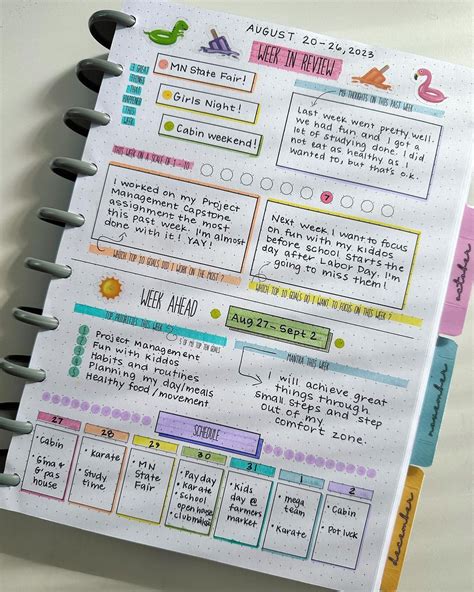 AUGUST 20-26, 2023
WEEK IN REVIEW
3 GREAT
THINGS
THAT
HAPPENED
THIS
WEEK
MN State Fair!
Girls Night!
Cabin weekend!
MY THOUGHTS ON THIS PAST WEEK
Last week went pretty well.
we had fun and I got a
lot of studying done. I did
not eat as healthy as I
wanted to, but that's o.k.
THIS WEEK ON A SCALE OF 1 - 10
7
I worked on my Project
Management Capstone
assignment the most
this past week. I'm almost
done with it! YAY!
WHICH TOP 10 GOALS DID I WORK ON THE MOST?
Next week I want to focus
on fun with my kiddos
before school starts the
day after Labor Day. I'm
going to miss them!
WHICH TOP 10 GOALS DO I WANT TO FOCUS ON THIS WEEK?
WEEK AHEAD
Aug 27 - Sept 2
TOP PRIORITIES THIS WEEK
5 OF MY TOP TEN GOALS
Project Management
Fun with kiddos
Habits and routines
Planning my day/meals
Healthy food/movement
MANTRA THIS WEEK
I will achieve great
things through
small steps and step
out of my
comfort zone.
SCHEDULE
27
• Cabin
• Gma &
G'pas
house
28
• Karate
• Study
time
29
• MN
State
Fair
30
• Pay day
• Karate
• school
open house
31
• Kids
day @
farmers
market
1
• mega
team
• Karate
2
• Cabin
• Pot luck
october
november
december